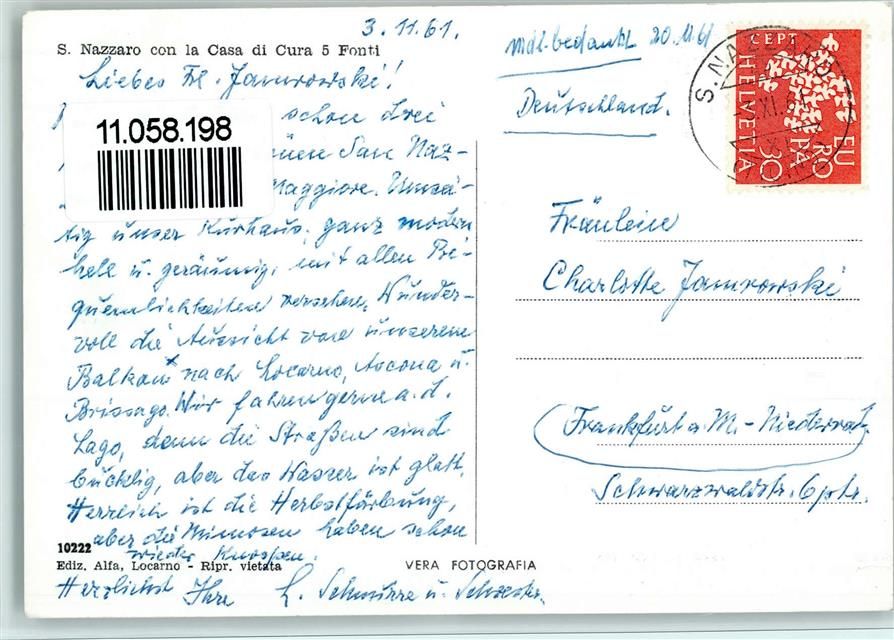 3.11.61.
S. Nazzaro con la Casa di Cura 5 Fonti
Liebes Frl. Jamrowski!
schon drei
11.058.198
San Naz-
Maggiore.
unser Kurhaus, ganz modern
hell u. geräumig, mit allen Be-
quemlichkeiten versehen. Wunder-
voll die Aussicht von unserem
Balkon nach Locarno, Ascona u.
Brissago. Wir fahren gerne a. d.
Lago, denn die Straßen sind
bucklig, aber das Wasser ist glatt.
Herrlich ist die Herbstfärbung,
aber die Mimosen haben schon
wieder Knospen.
10222
Ediz. Alfa, Locarno - Ripr. vietata
VERA FOTOGRAFIA
Herzlichst Ihre L. u. Schwester.
mdl. bedankt 20.11.61
Deutschland.
CEPT
HELVETIA
EUROPA
30
S. NAZZARO
XI.61
Fräulein
Charlotte Jamrowski
Frankfurt a. M. - Niederrat,
Schwarzwaldstr. 6 ptr.